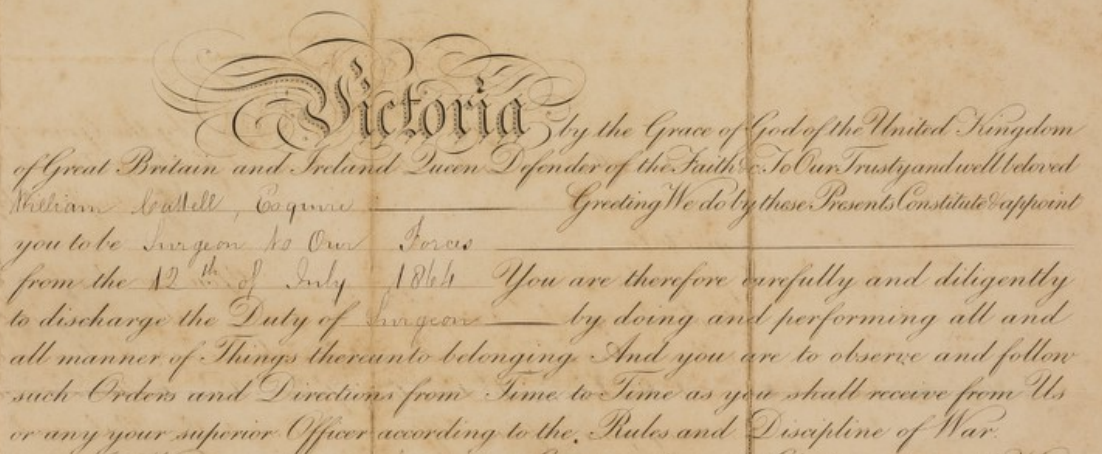 Victoria by the Grace of God of the United Kingdom
of Great Britain and Ireland Queen Defender of the Faith &c. To Our Trusty and well beloved
William Cattell, Esquire Greeting We do by these Presents Constitute & appoint
you to be Surgeon to Our Forces
from the 12th of July 1864 You are therefore carefully and diligently
to discharge the Duty of Surgeon by doing and performing all and
all manner of Things thereunto belonging. And you are to observe and follow
such Orders and Directions from Time to Time as you shall receive from Us
or any your superior Officer according to the Rules and Discipline of War.